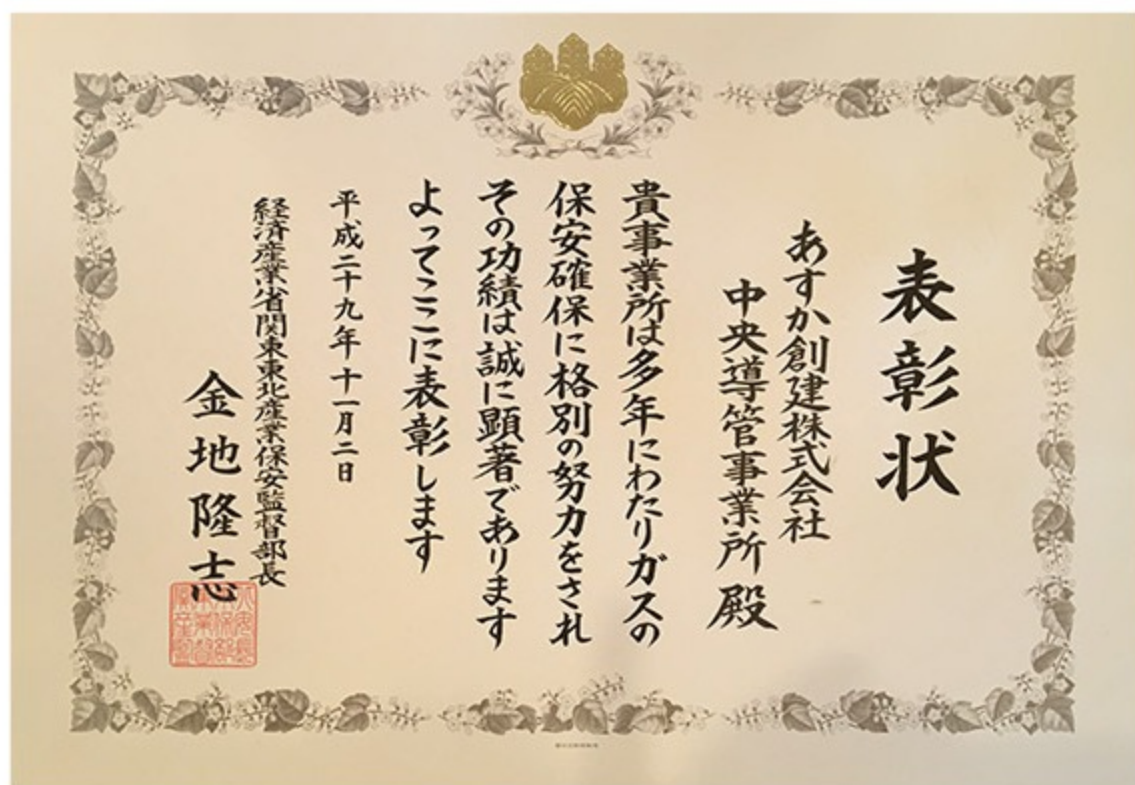 表彰状
あすか創建株式会社
中央導管事業所 殿
貴事業所は多年にわたりガスの
保安確保に格別の努力をされ
その功績は誠に顕著であります
よってここに表彰します
平成二十九年十一月二日
経済産業省関東東北産業保安監督部長
金地隆志